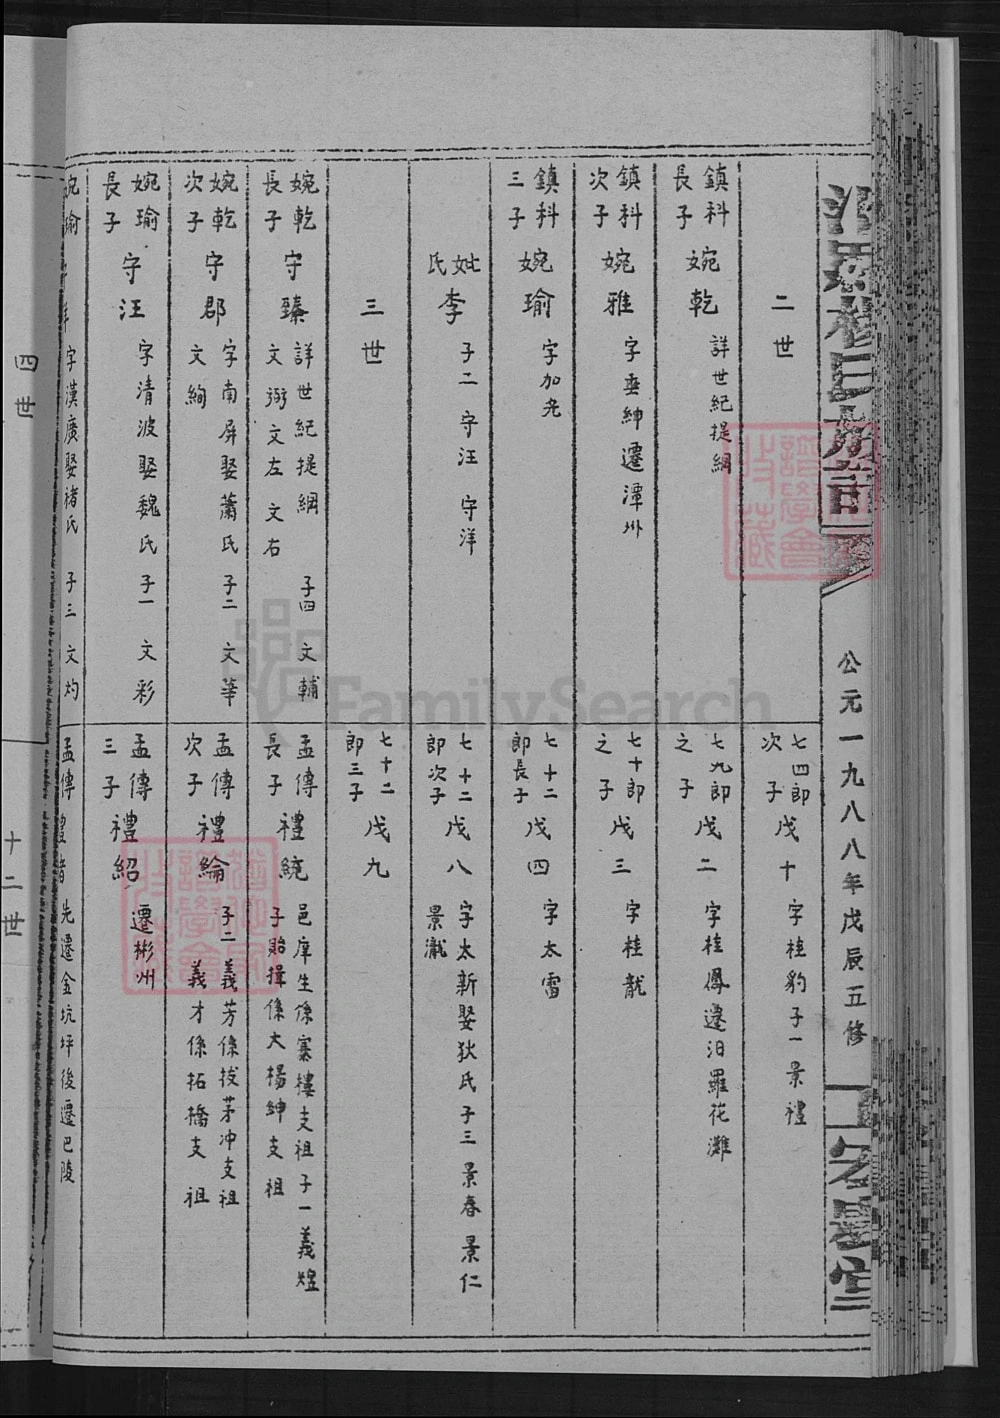 公元一九八八年戊辰五修
二世
鎮科長子
婉乾
詳世紀提綱
鎮科次子
婉雅
字垂紳遷潭州
鎮科三子
婉瑜
字加堯
妣李氏
子二 守汪 守洋
三世
婉乾長子
守臻
詳世紀提綱 子四 文輔
文弼 文左 文右
婉乾次子
守郡
字南屏娶蕭氏 子二 文華
文絢
婉瑜長子
守汪
字清波娶魏氏 子一 文彩
婉瑜
字漢廣娶褚氏 子三 文灼
七四郎次子
戊十
字桂豹子一景禮
七九郎之子
戊二
字桂鳳遷汨羅花灘
七十郎之子
戊三
字桂龍
七十二郎長子
戊四
字太雷
七十二郎次子
戊八
字太新娶狄氏子三 景春 景仁
景瀛
七十二郎三子
戊九
孟傳長子
禮統
邑庠生係寨樓支祖子一義煜
子貽揖係大楊紳支祖
孟傳次子
禮綸
子二義芳係拔茅冲支祖
義才係拓橋支祖
孟傳三子
禮紹
遷彬州
孟傳
禮緒
先遷金坑坪後遷巴陵
四世
十二世
FamilySearch